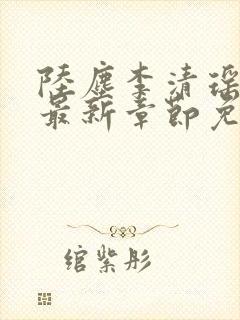 陆尘李清瑶
最新章节免
绾紫彤